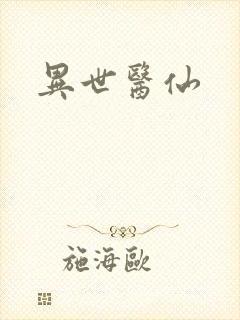 異世醫仙
施海歐